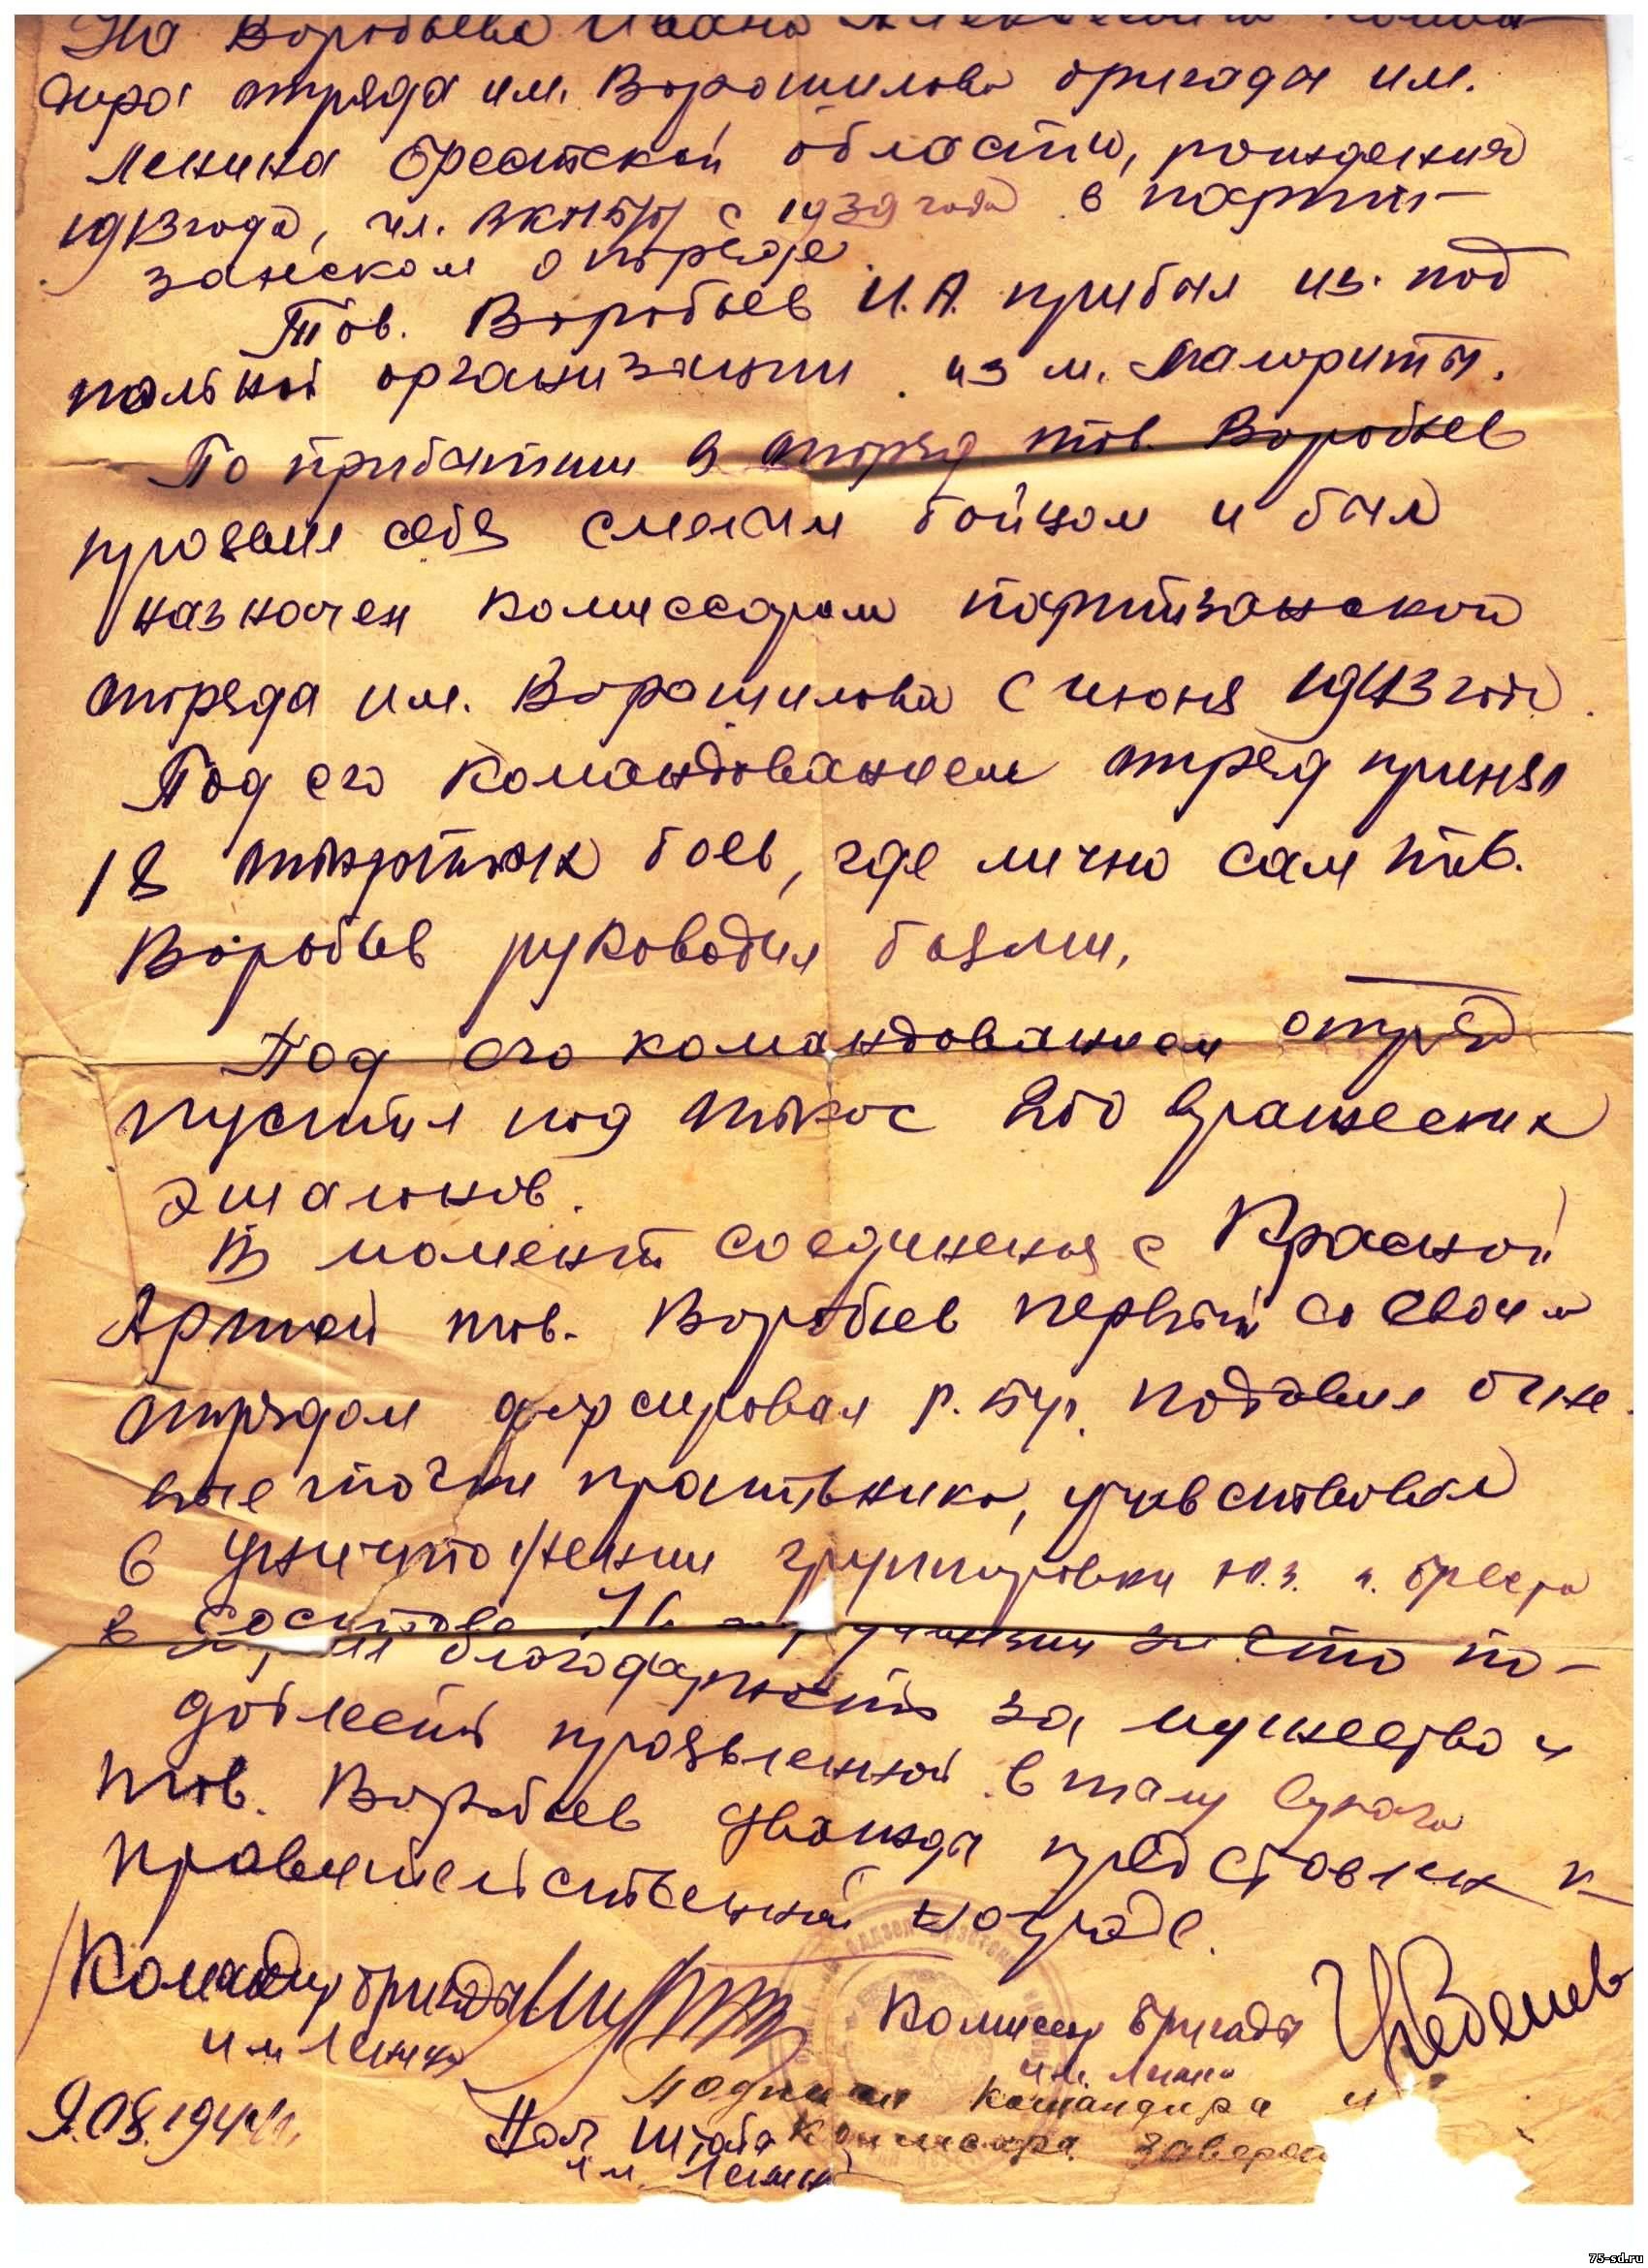 На Воробьева Ивана Алексеевича коман-
дира отряда им. Ворошилова бригады им.
Ленина Брестской области, рождения
1913 года, чл. ВКП(б) с 1939 года в парти-
занском отряде
Тов. Воробьев И.А. прибыл из под
польной организации из м. Малориты.
По прибытии в отряд тов. Воробьев
проявил себя смелым бойцом и был
назначен комиссаром партизанской
отряда им. Ворошилова с июня 1943 года.
Под его командованием отряд принял
18 открытых боев, где лично сам тов.
Воробьев руководил боями,
Под его командованием отряд
пустил под откос 200 вражеских
эшалонов.
В момент соединения с Красной
Армией тов. Воробьев первый со своим
отрядом форсировал р. Буг, подавил огне
вые точки противника, учавствовал
в уничтожении группировки ю.з. г. Бреста
в составе за что по-
благодарность за мужество и
доблесть проявленной в тылу врага
тов. Воробьев дважды представлен к
правительственной награде.
Командир бригады
им Ленина
Комиссар бригады
им. Ленина
9.08.1944г.
Подписи командира и
Комиссара заверяю
Нач штаба
им. Ленина
75-sd.ru